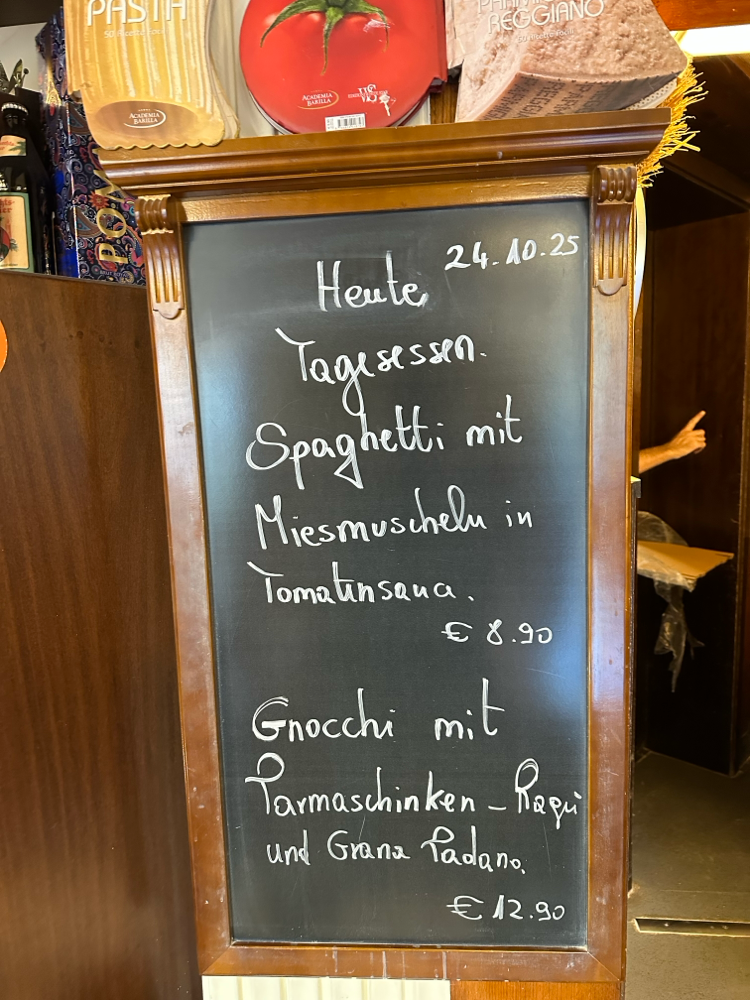 PASTA
50 Ricette Facili
ACADEMIA BARILLA
ACADEMIA BARILLA
REGGIANO
50 Ricette Facili
PON
24.10.25
Heute
Tagesessen.
Spaghetti mit
Miesmuscheln in
Tomatensauce.
€ 8.90
Gnocchi mit
Parmaschinken - Ragù
und Grana Padano.
€ 12.90